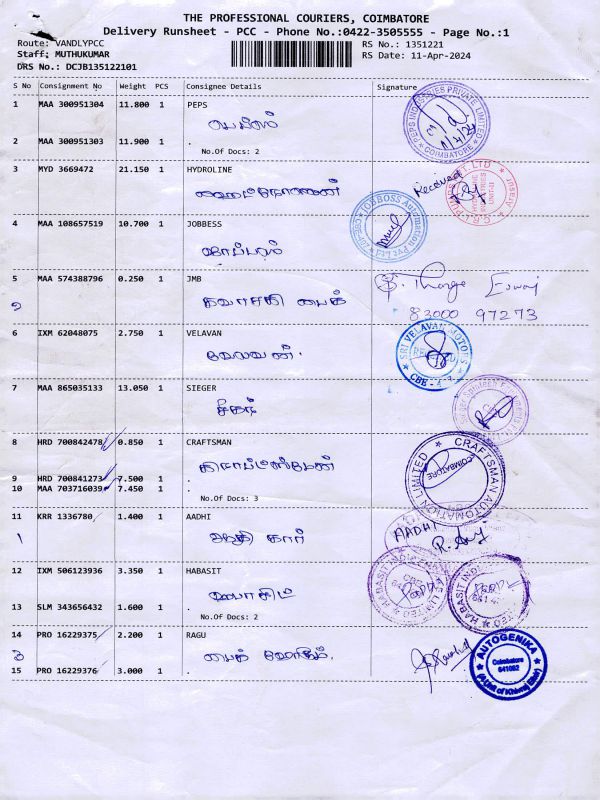 THE PROFESSIONAL COURIERS, COIMBATORE
Delivery Runsheet - PCC - Phone No.:0422-3505555 - Page No.:1
Route: VANDLYPCC RS No.: 1351221
Staff: MUTHUKUMAR RS Date: 11-Apr-2024
DRS No.: DCJB135122101
S No Consignment No Weight PCS Consignee Details Signature
1 MAA 300951304 11.800 1 PEPS
பெப்ஸ்
2 MAA 300951303 11.900 1 .
No.Of Docs: 2
COIMBATORE
3 MYD 3669472 21.150 1 HYDROLINE
Received
4 MAA 108657519 10.700 1 JOBBESS
ஜாப்பஸ்
5 MAA 574388796 0.250 1 JMB
83000 97273
6 IXM 62048075 2.750 1 VELAVAN
வேலவன்.
SRI VELAVAN MOTORS
CBE - 4
7 MAA 865035133 13.050 1 SIEGER
சீகர்
8 HRD 700842478 0.850 1 CRAFTSMAN
CRAFTSMAN AUTOMATION LIMITED
COIMBATORE
9 HRD 700841273 7.500 1 .
10 MAA 703716039 7.450 1 .
No.Of Docs: 3
11 KRR 1336780 1.400 1 AADHI
1 ஆதி கார்
AADHI
12 IXM 506123936 3.350 1 HABASIT
ஹபாசிட்
13 SLM 343656432 1.600 1 .
No.Of Docs: 2
14 PRO 16229375 2.200 1 RAGU
15 PRO 16229376 3.000 1 .
AUTOGENIKA
Coimbatore
641062